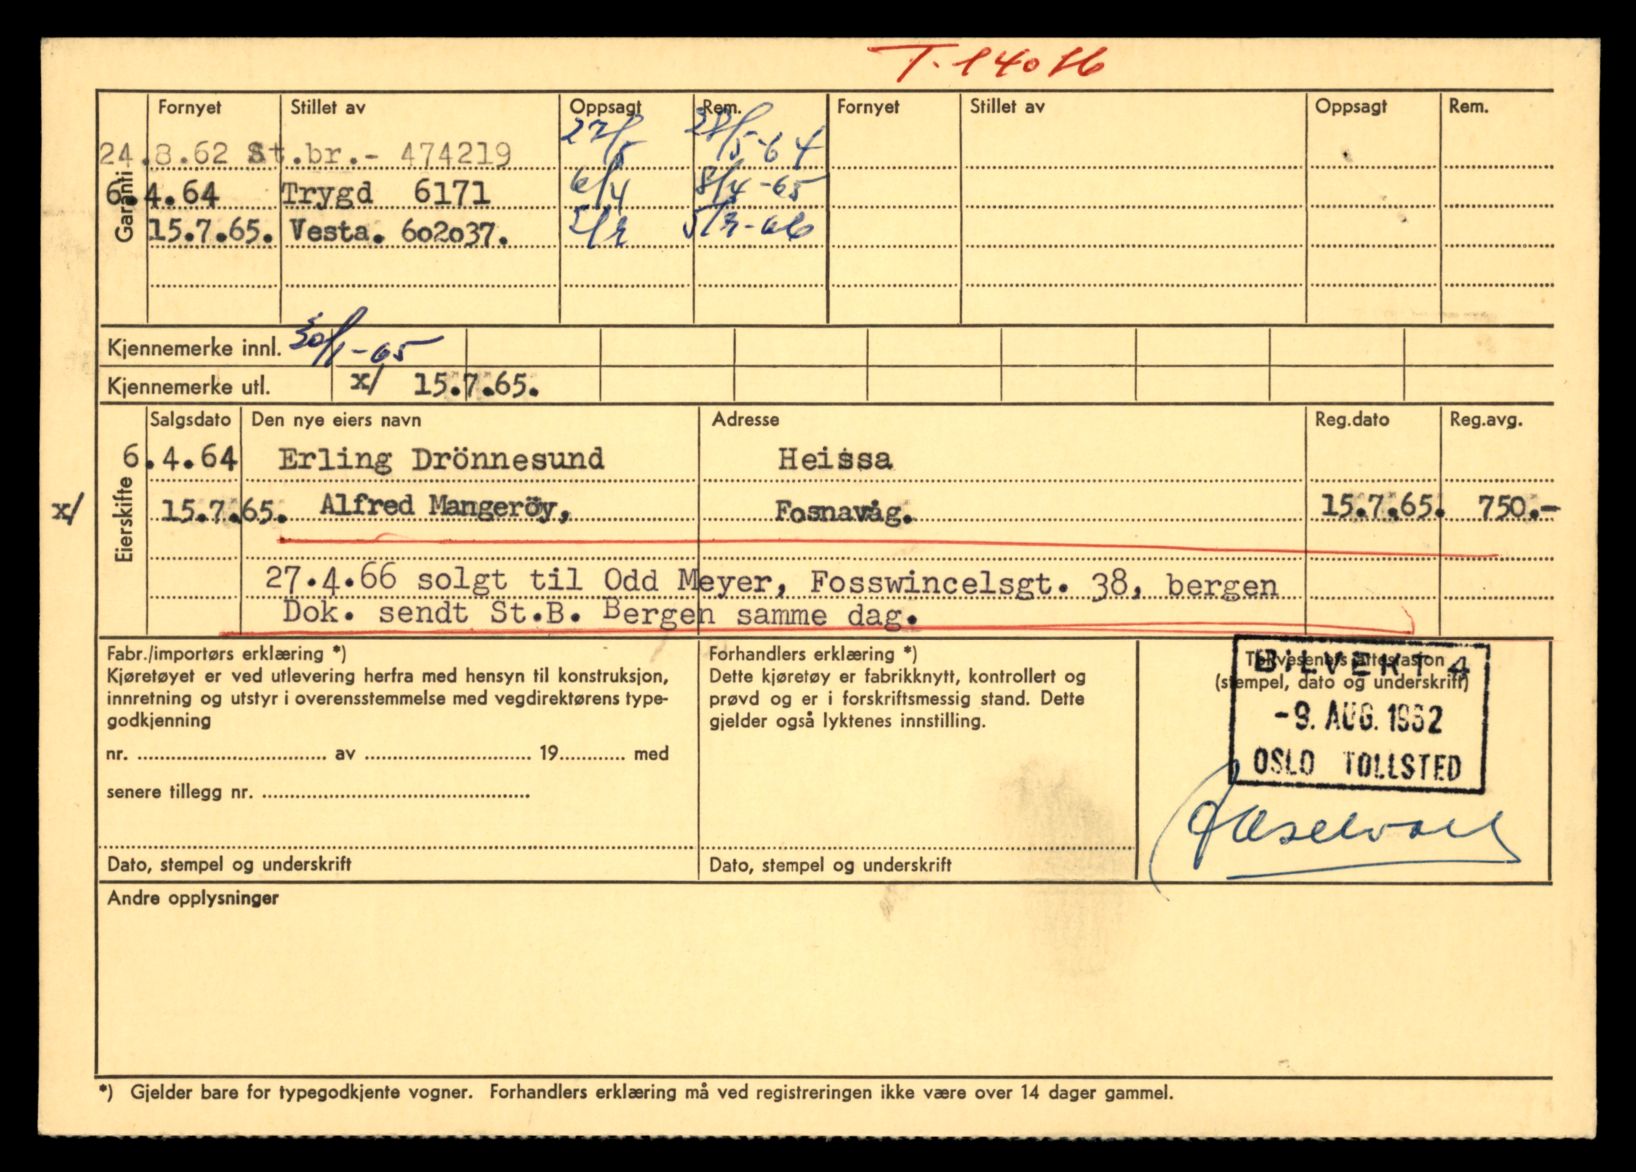 T. 14016
Fornyet Stillet av Oppsagt Rem. Fornyet Stillet av Oppsagt Rem.
24.8.62 St.br.- 474219 27/5 28/5-64
6.4.64 Trygd 6171 6/4 8/4-65
15.7.65. Vesta. 602037. 5/3-66
Garanti
Kjennemerke innl. 30/1-65
Kjennemerke utl. x/ 15.7.65.
Salgsdato Den nye eiers navn Adresse Reg.dato Reg.avg.
6.4.64 Erling Drönnesund Heissa
x/ 15.7.65. Alfred Mangeröy, Fosnavåg. 15.7.65. 750.-
Eierskifte
27.4.66 solgt til Odd Meyer, Fosswincelsgt. 38, bergen
Dok. sendt St.B. Bergen samme dag.
Fabr./importørs erklæring *)
Kjøretøyet er ved utlevering herfra med hensyn til konstruksjon,
innretning og utstyr i overensstemmelse med vegdirektørens type-
godkjenning
nr. av 19 med
senere tillegg nr.
Dato, stempel og underskrift
Forhandlers erklæring *)
Dette kjøretøy er fabrikknytt, kontrollert og
prøvd og er i forskriftsmessig stand. Dette
gjelder også lyktenes innstilling.
Dato, stempel og underskrift
Tollvesenets attestasjon
(stempel, dato og underskrift)
BILVEKT 4
-9. AUG. 1962
OSLO TOLLSTED
Andre opplysninger
*) Gjelder bare for typegodkjente vogner. Forhandlers erklæring må ved registreringen ikke være over 14 dager gammel.